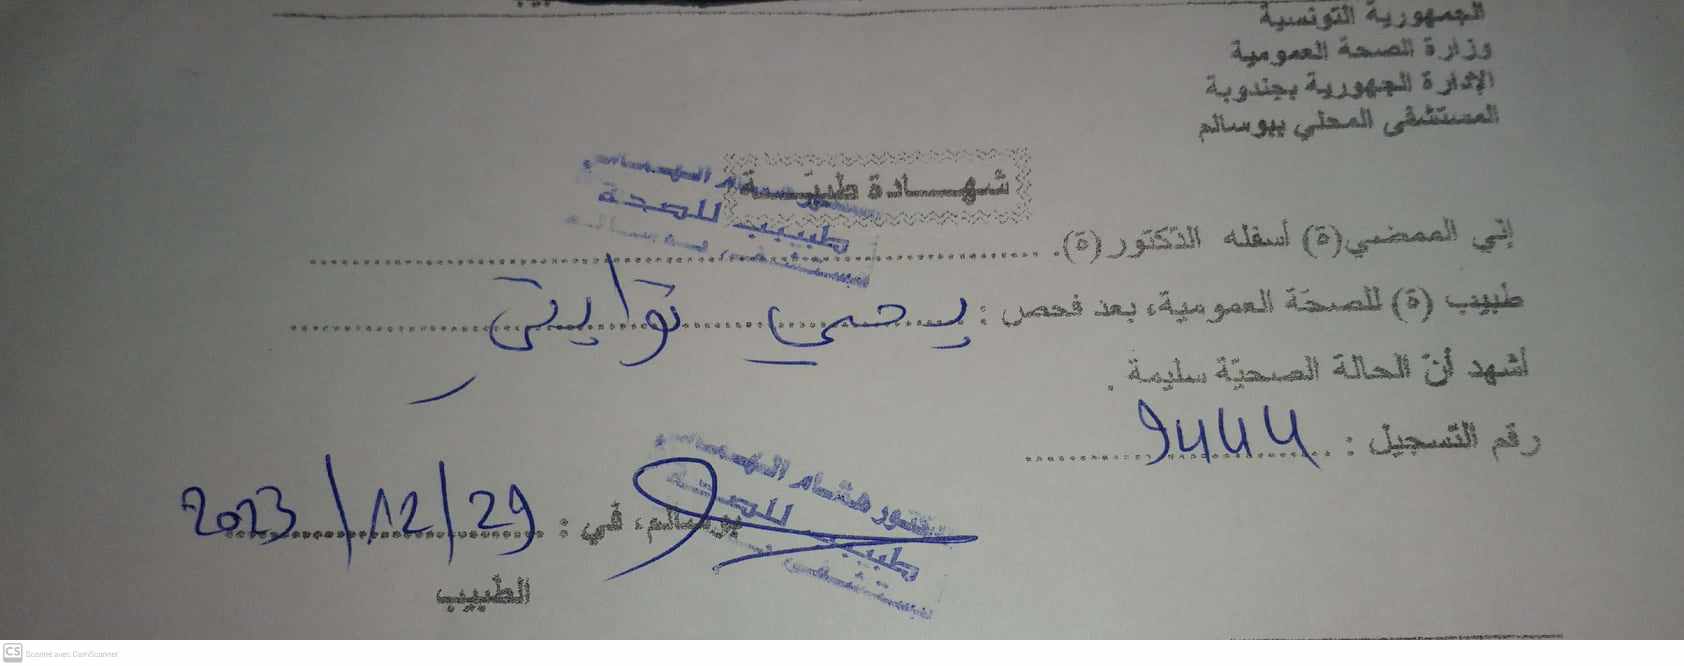 الجمهورية التونسية
وزارة الصحة العمومية
الإدارة الجهورية بجندوبة
المستشفى المحلي ببوسالم
شهـــادة طبيّـــة
إني الممضي(ة) أسفله الدكتور (ة).
طبيب للصحة
طبيب (ة) للصحّة العمومية، بعد فحص : يحيى توايتي
أشهد أنّ الحالة الصحيّة سليمة .
رقم التسجيل : 9444
الدكتور هشام
طبيب للصحة
بوسالم، في : 2023/12/29
الطبيب
CS Scanné avec CamScanner